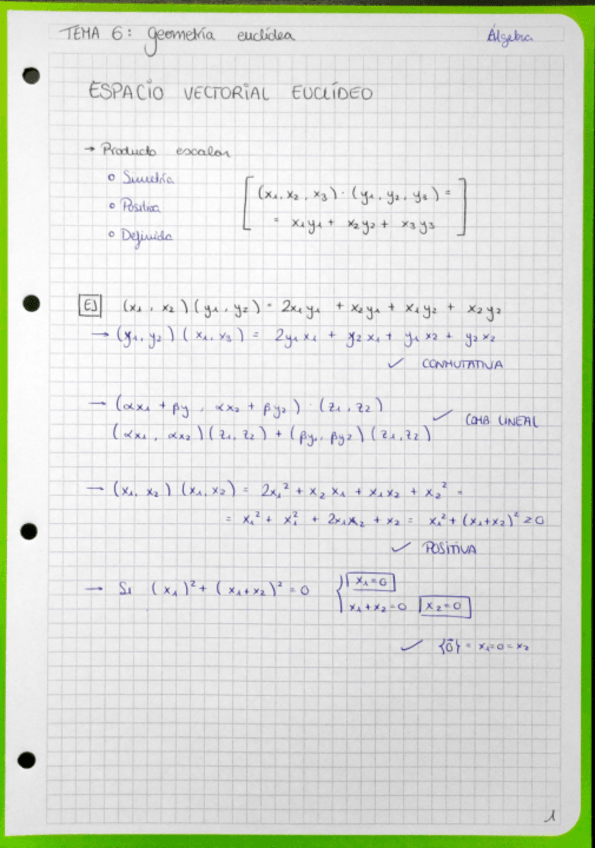 TEMA 6: Geometría euclídea
Álgebra
ESPACIO VECTORIAL EUCLÍDEO
→ Producto escalar
o Simetría
o Positiva
o Definida
[ (x₁, x₂, x₃) · (y₁, y₂, y₃) =
= x₁y₁ + x₂y₂ + x₃y₃ ]
EJ (x₁, x₂)(y₁, y₂) = 2x₁y₁ + x₂y₁ + x₁y₂ + x₂y₂
→ (y₁, y₂)(x₁, x₃) = 2y₁x₁ + y₂x₁ + y₁x₂ + y₂x₂
✓ CONMUTATIVA
→ (αx₁ + βy, αx₂ + βy₂) · (z₁, z₂)
✓ COMB LINEAL
(αx₁, αx₂)(z₁, z₂) + (βy₁, βy₂)(z₁, z₂)
→ (x₁, x₂)(x₁, x₂) = 2x₁² + x₂x₁ + x₁x₂ + x₂² =
= x₁² + x₁² + 2x₁x₂ + x₂ = x₁² + (x₁+x₂)² ≥ 0
✓ POSITIVA
→ Si (x₁)² + (x₁+x₂)² = 0 { x₁=0
x₁+x₂=0 x₂=0
✓ {0⃗} = x₁=0=x₂
1